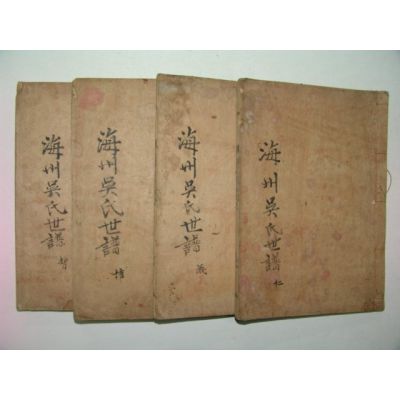 海州吳氏世譜 仁
海州吳氏世譜 義
海州吳氏世譜
海州吳氏世譜 智